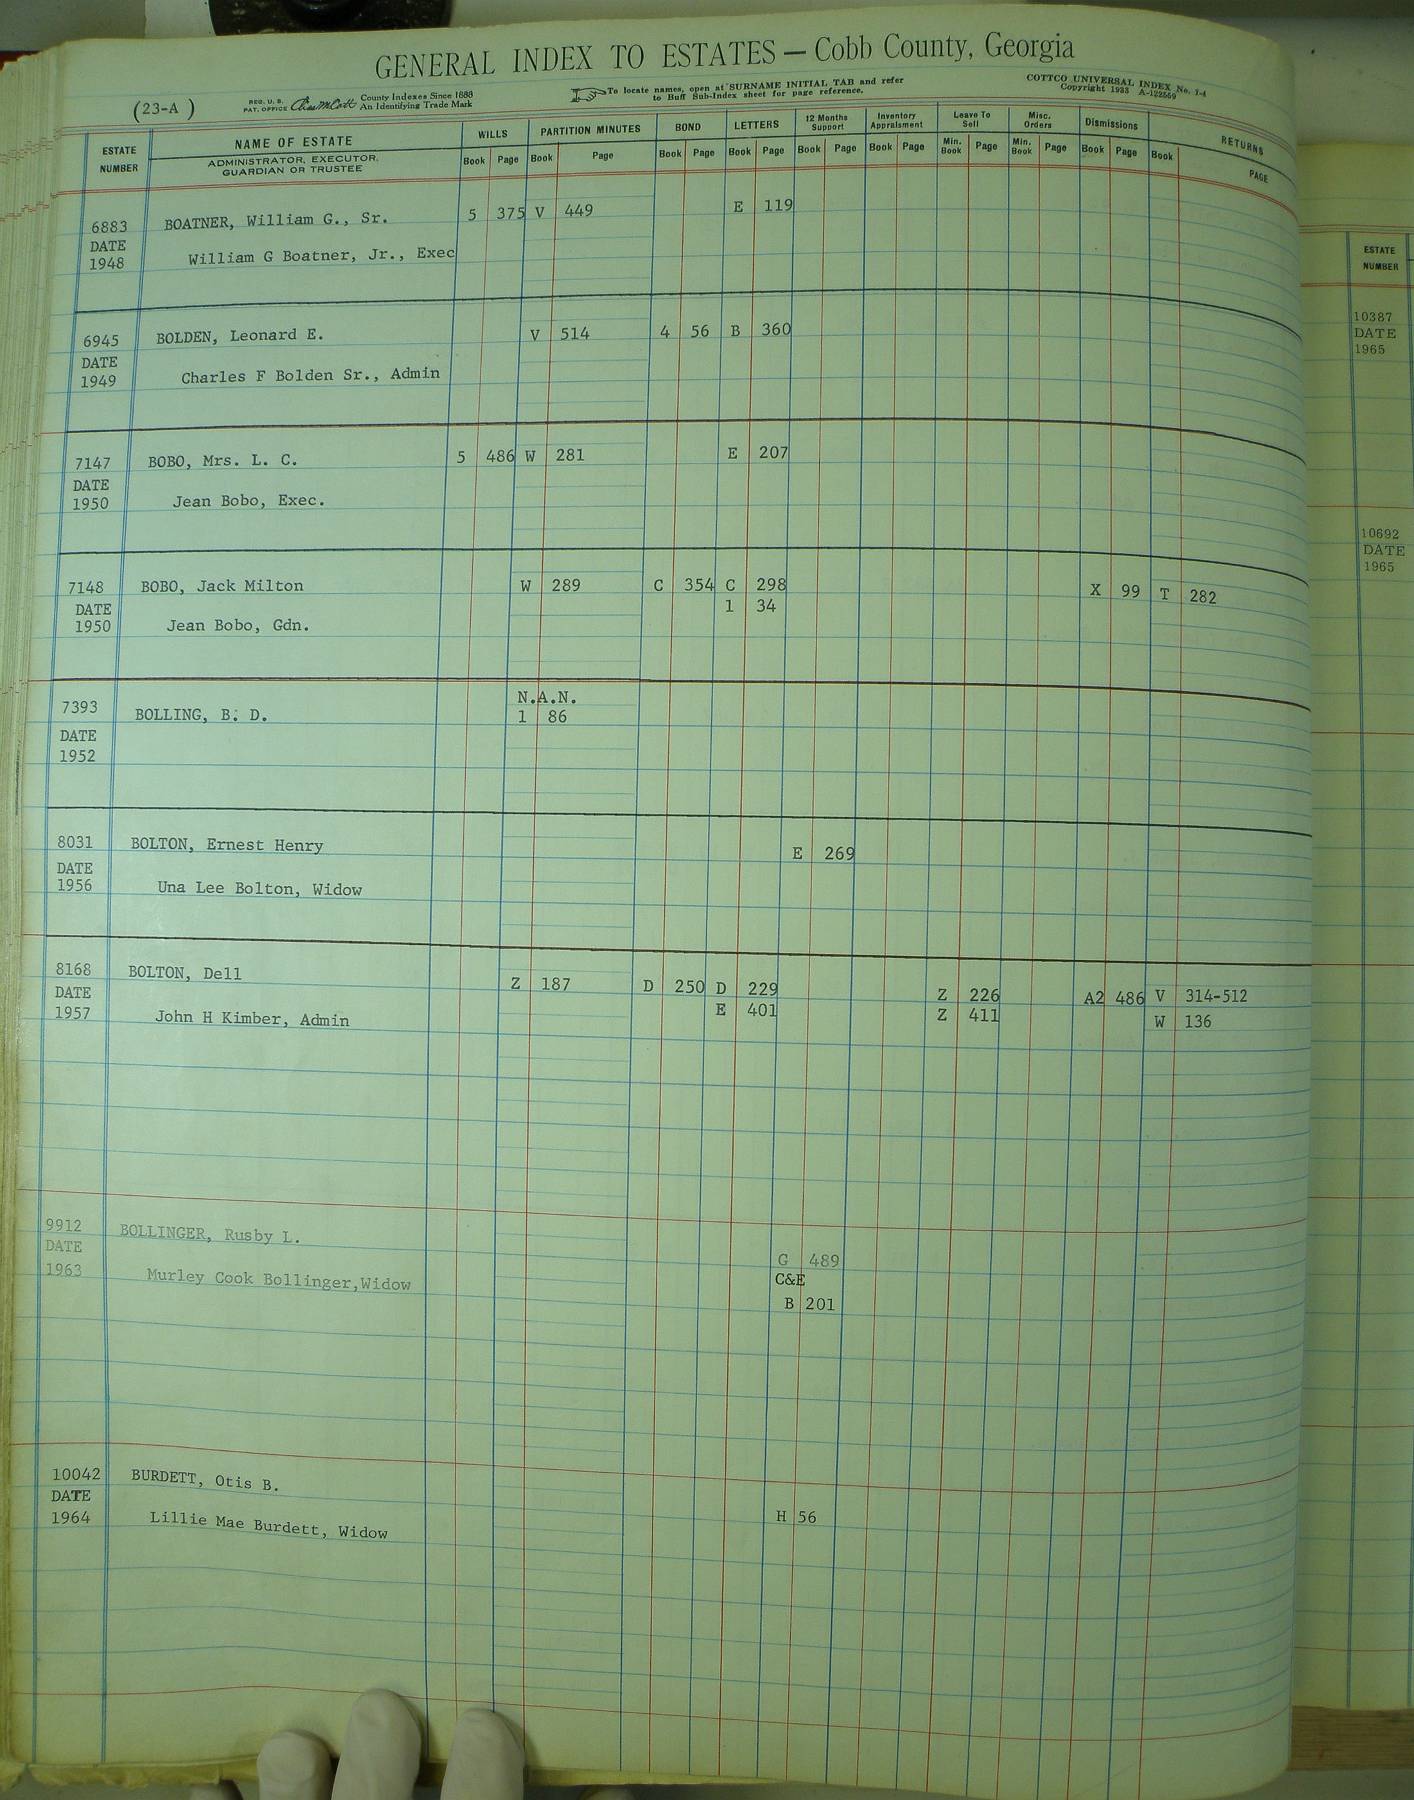 GENERAL INDEX TO ESTATES — Cobb County, Georgia
(23-A )
REG. U. S. PAT. OFFICE County Indexes Since 1888 An Identifying Trade Mark
To locate names, open at SURNAME INITIAL TAB and refer
to Buff Sub-Index sheet for page reference.
COTTCO UNIVERSAL INDEX No. 1-4
Copyright 1933 A-122569
ESTATE NUMBER NAME OF ESTATE WILLS PARTITION MINUTES BOND LETTERS 12 Months Support Inventory Appraisment Leave To Sell Misc. Orders Dismissions RETURNS
ADMINISTRATOR, EXECUTOR, GUARDIAN OR TRUSTEE Book Page Book Page Book Page Book Page Book Page Book Page Min. Book Page Min. Book Page Book Page Book PAGE
6883 BOATNER, William G., Sr. 5 375 V 449 E 119
DATE
1948 William G Boatner, Jr., Exec
6945 BOLDEN, Leonard E. V 514 4 56 B 360
DATE
1949 Charles F Bolden Sr., Admin
7147 BOBO, Mrs. L. C. 5 486 W 281 E 207
DATE
1950 Jean Bobo, Exec.
7148 BOBO, Jack Milton W 289 C 354 C 298 X 99 T 282
DATE 1 34
1950 Jean Bobo, Gdn.
N.A.N.
7393 BOLLING, B. D. 1 86
DATE
1952
8031 BOLTON, Ernest Henry E 269
DATE
1956 Una Lee Bolton, Widow
8168 BOLTON, Dell Z 187 D 250 D 229 Z 226 A2 486 V 314-512
DATE E 401 Z 411 W 136
1957 John H Kimber, Admin
9912 BOLLINGER, Rusby L.
DATE G 489
1963 Murley Cook Bollinger,Widow C&E
B 201
10042 BURDETT, Otis B.
DATE
1964 Lillie Mae Burdett, Widow H 56
ESTATE
NUMBER
10387
DATE
1965
10692
DATE
1965